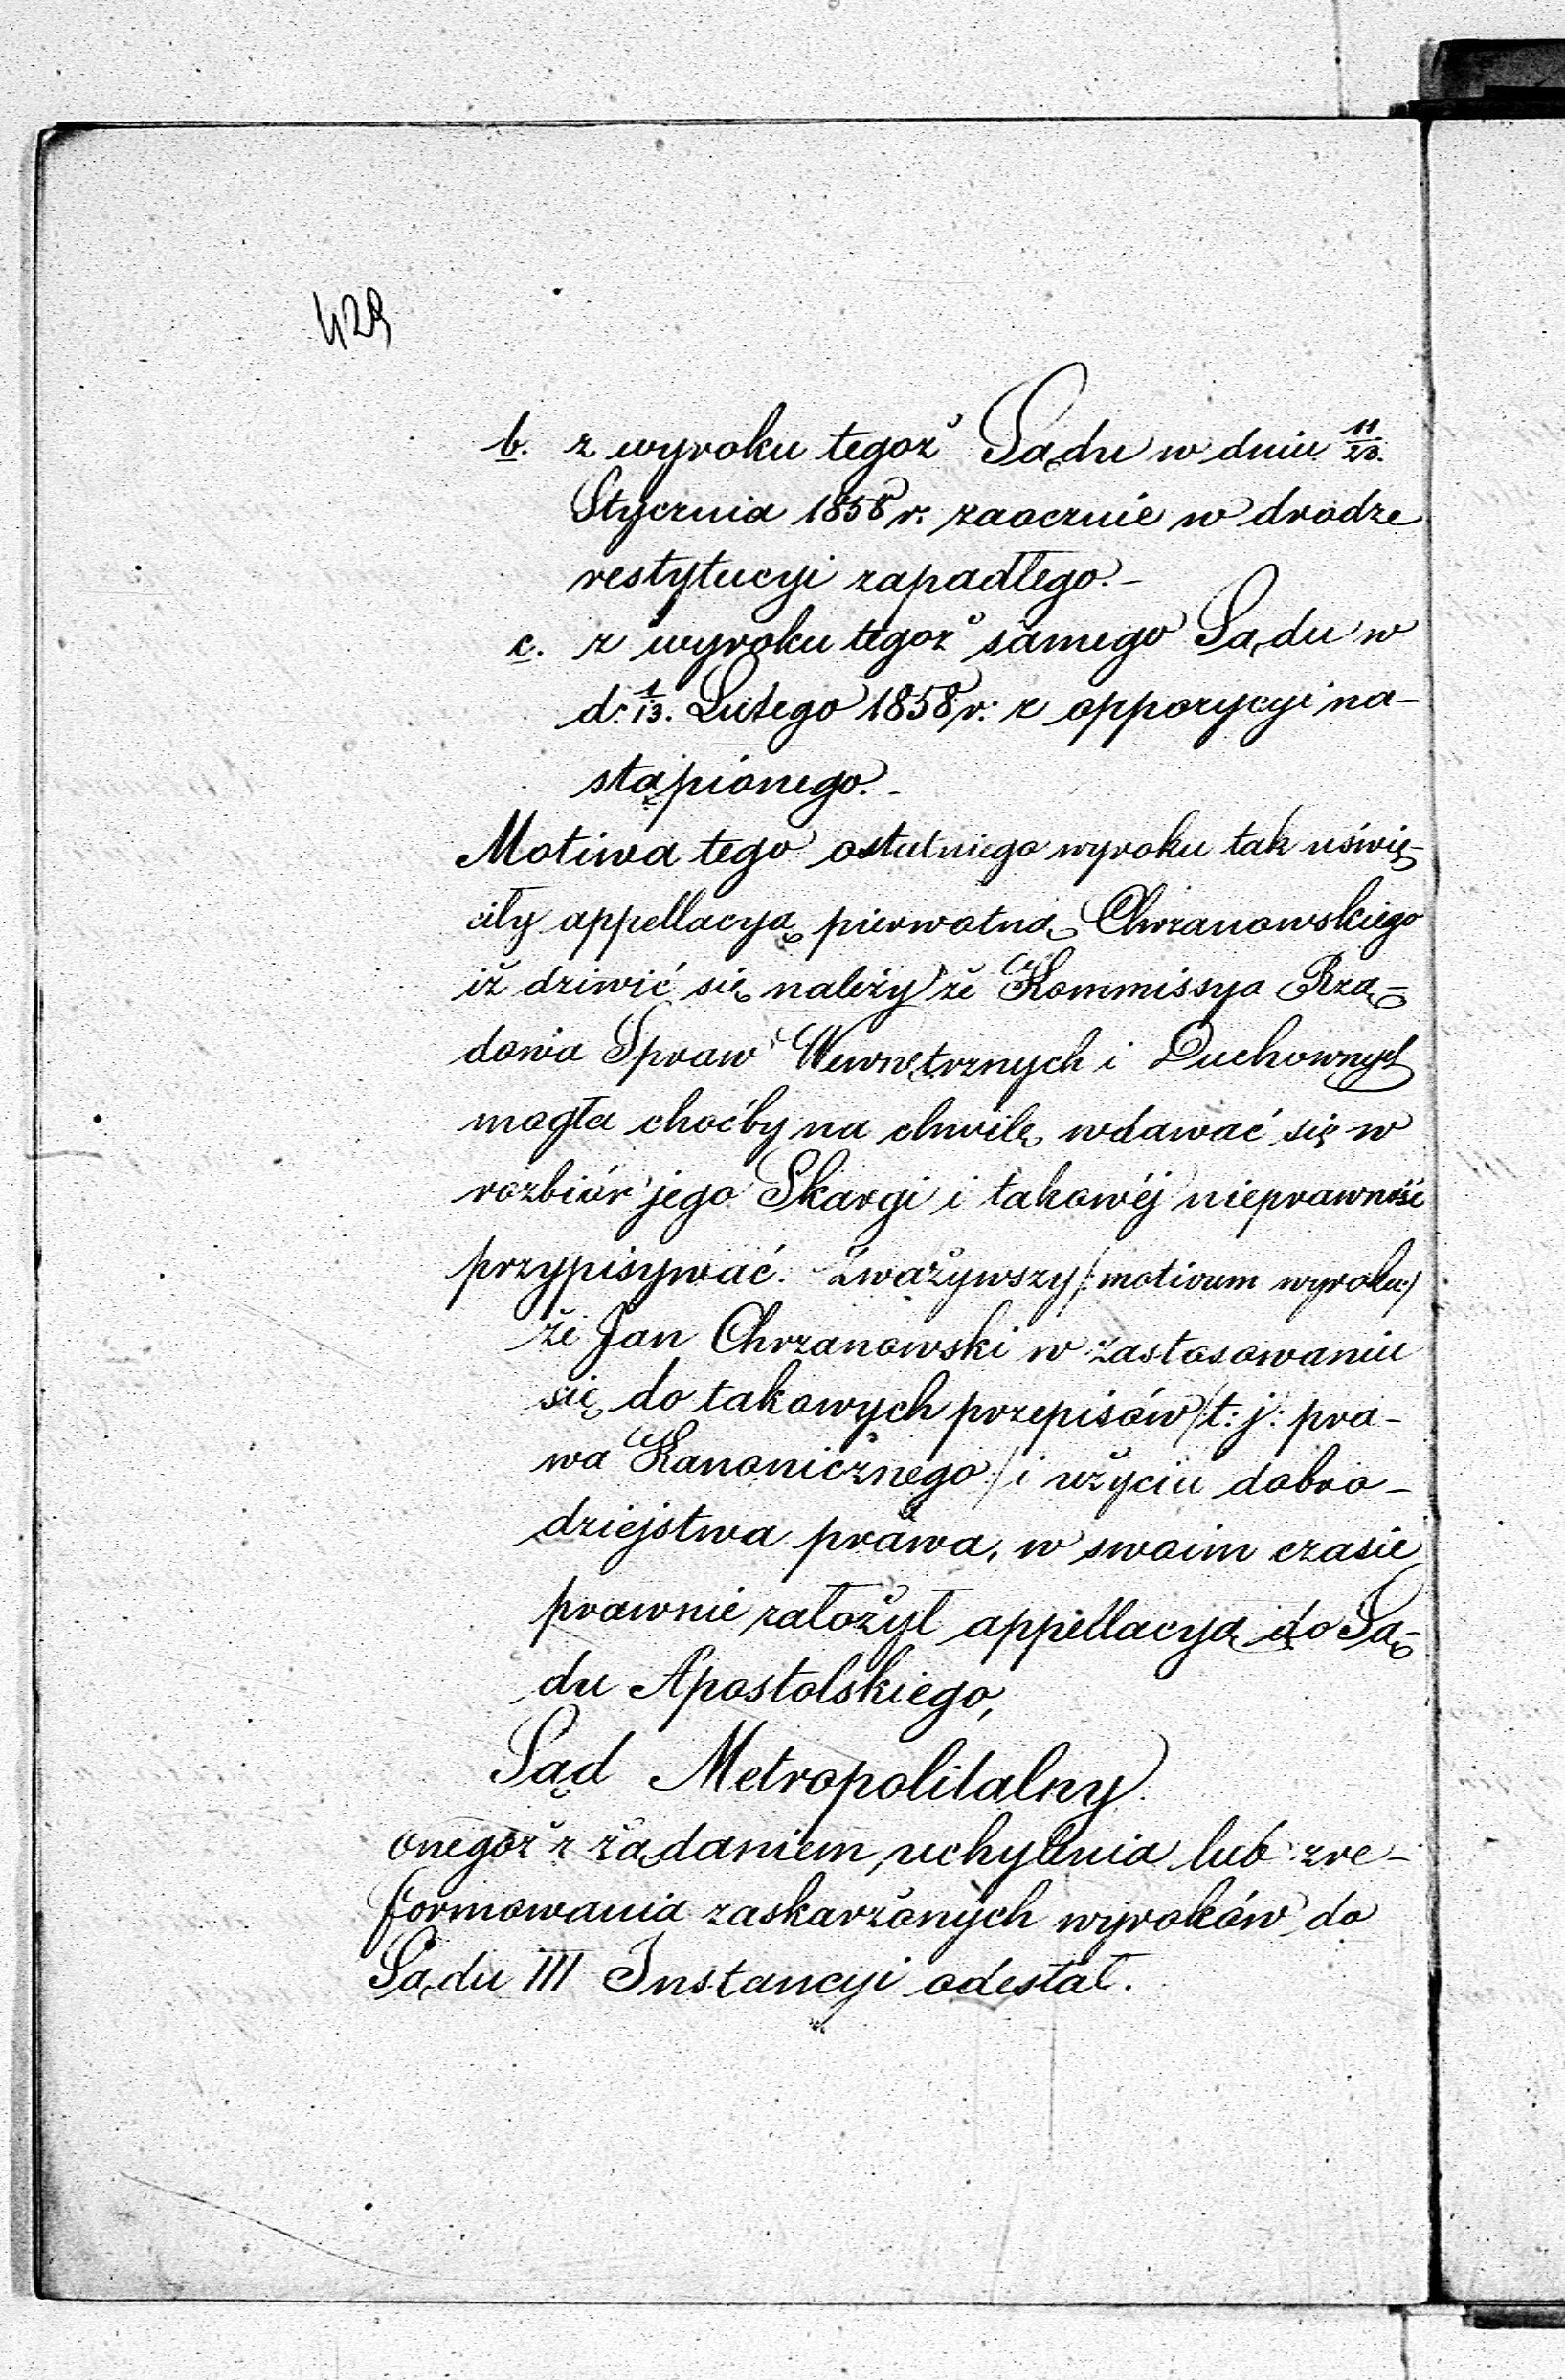 429
b. z wyroku tegoż Sądu w dniu 11/23.
Stycznia 1858 r: zaocznie w drodze
restytucyi zapadłego.-
c. z wyroku tegoż samego Sądu w
d: 1/13. Lutego 1858 r: z oppozycyi na-
stąpionego.-
Motiwa tego ostatniego wyroku tak uświę-
ciły appellacyą pierwotną Chrzanowskiego
iż dziwić się należy że Kommissya Rzą-
dowa Spraw Wewnętrznych i Duchownych
mogła choćby na chwilę wdawać się w
rozbiór jego Skargi i takowéj nieprawność
przypisywać. Zważywszy /:motivum wyroku:/
że Jan Chrzanowski w zastosowaniu
się do takowych przepisów /t: j: pra-
wa Kanonicznego/ i użyciu dobro-
dziejstwa prawa, w swoim czasie
prawnie założył appellacyą do Są-
du Apostolskiego,
Sąd Metropolitalny
onegoż z żądaniem uchylenia lub zre-
formowania zaskarżonych wyroków do
Sądu III Instancyi odesłał.